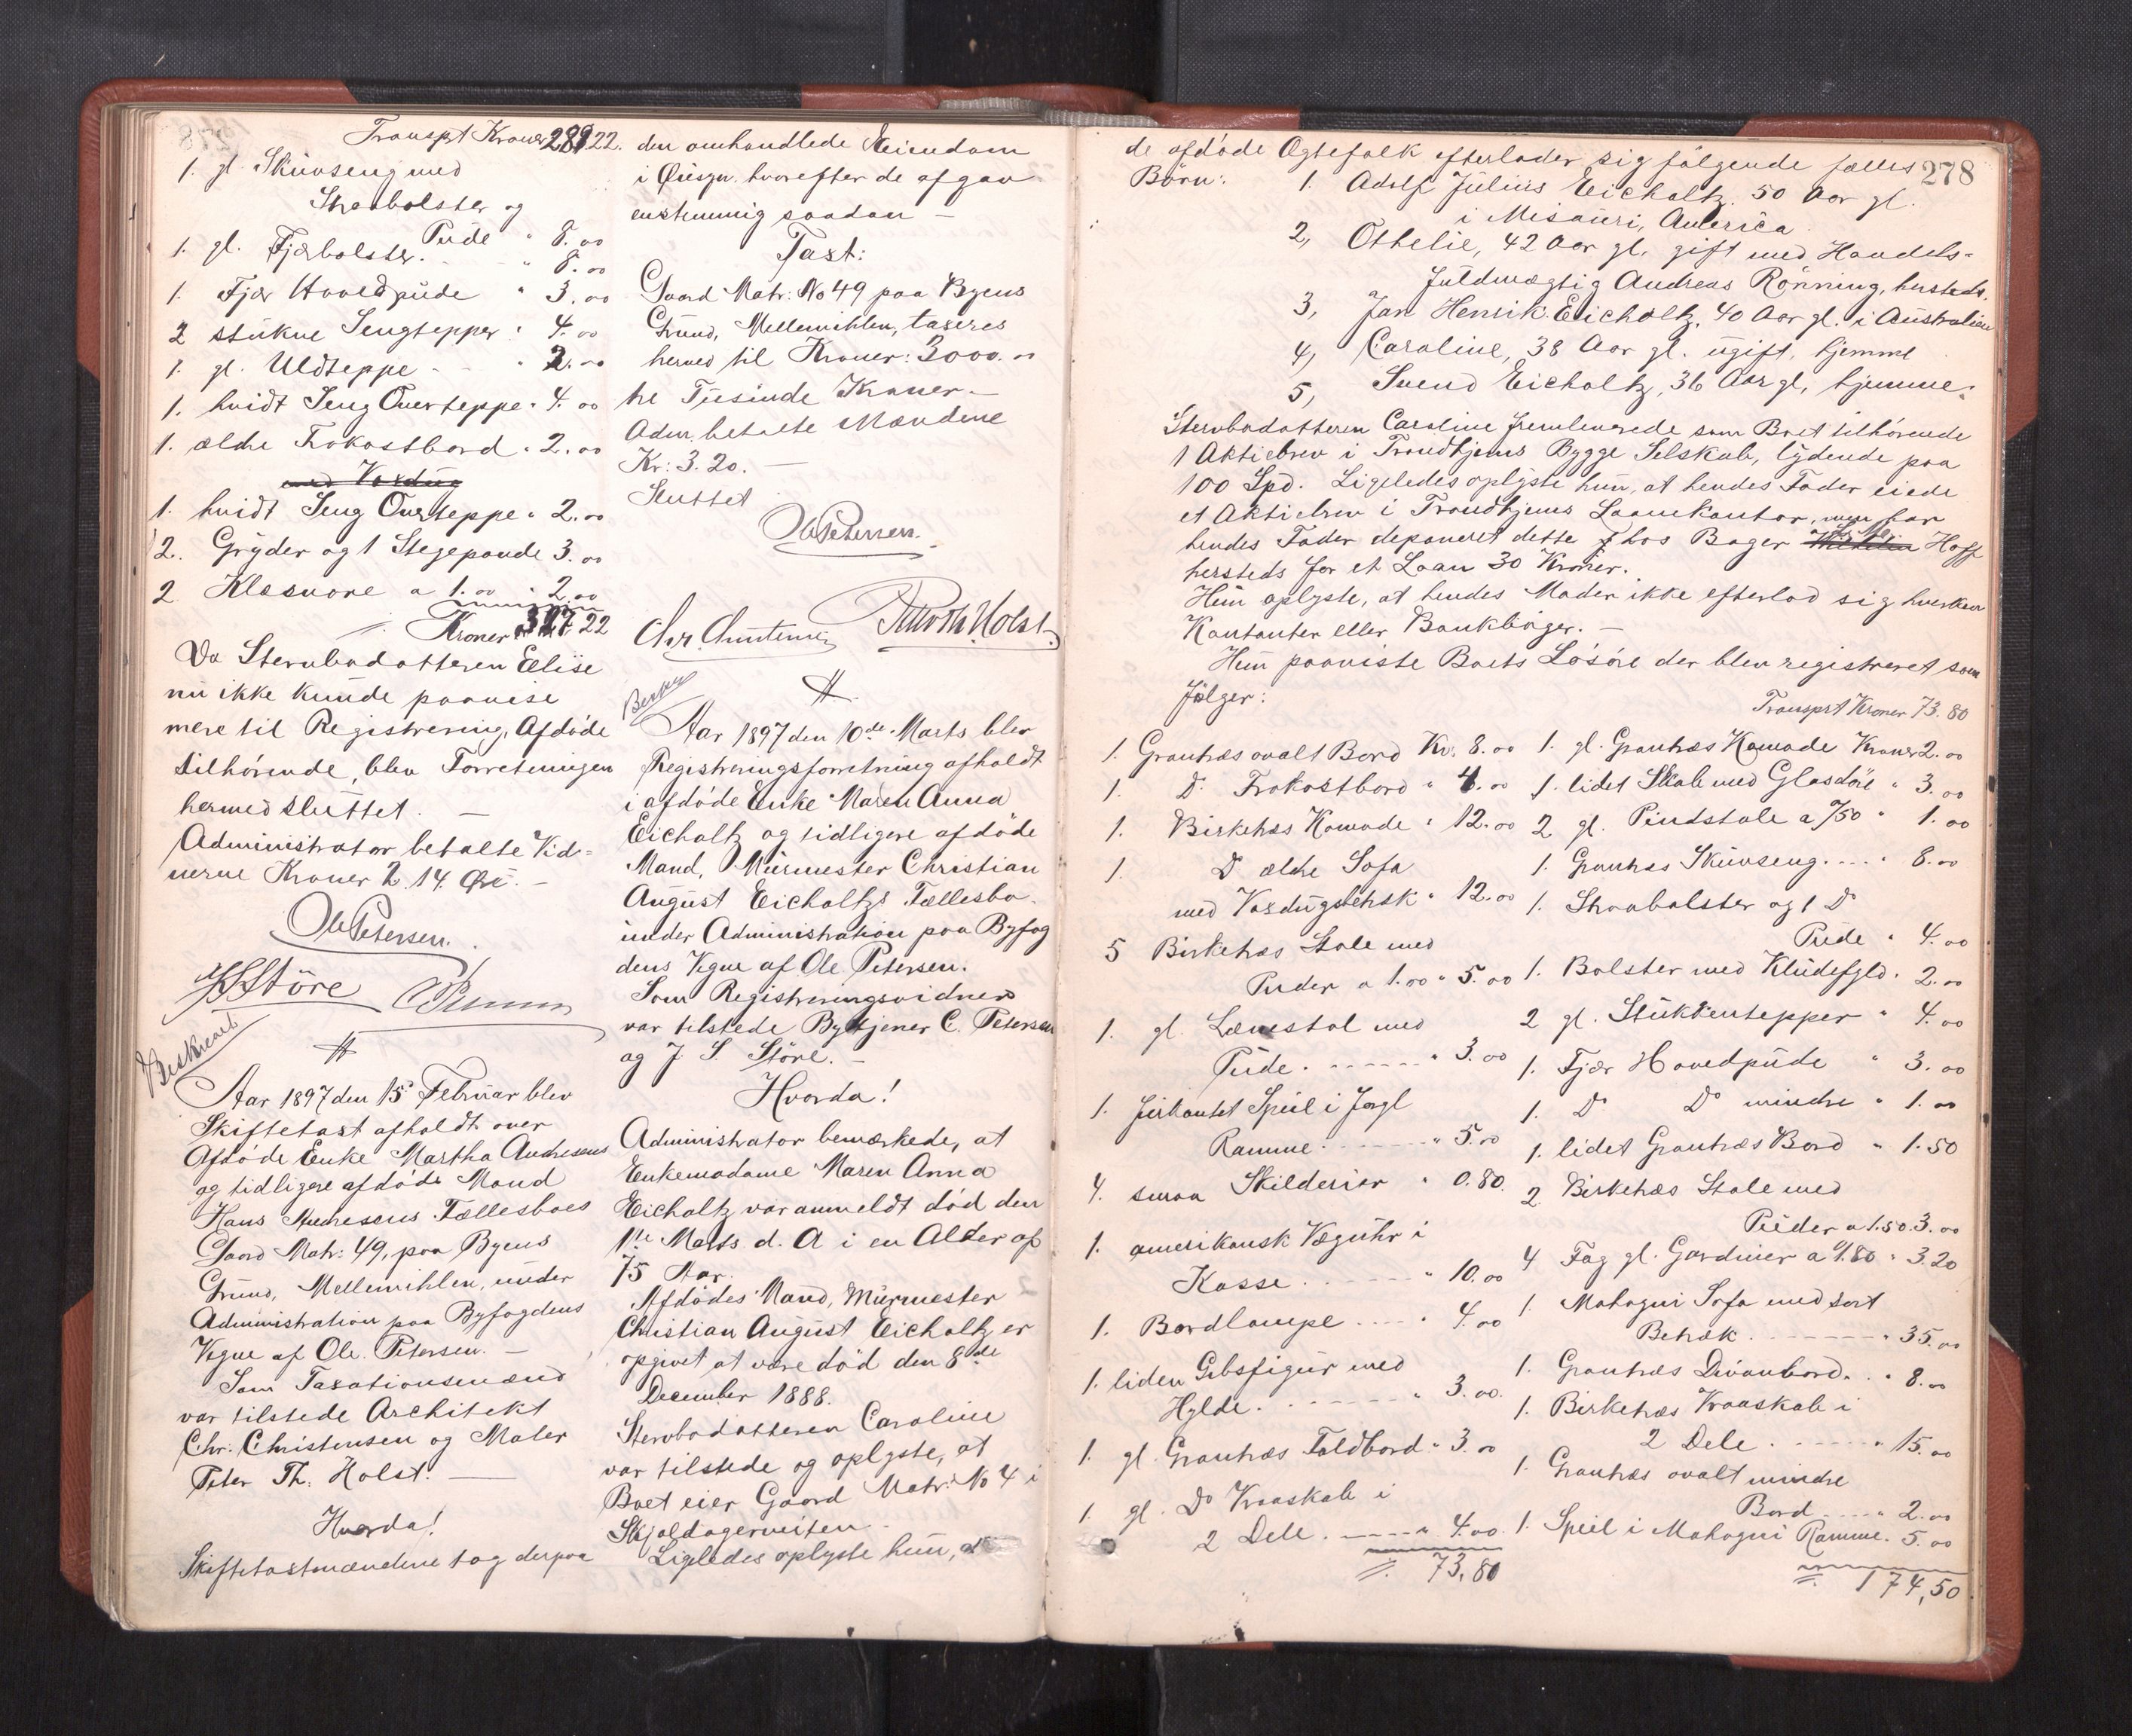 Transpt Kroner 289 22.
1. gl. Skuvseng med
Straabolster og
Pude " 8.00
1. gl. Fjærbolster. - " 8.00
1. Fjær Hovedpude " 3.00
2 stukne Sengtepper " 4.00
1. gl. Uldteppe - - " 2.00
1. hvidt Seng Overteppe " 4.00
1. ældre Frokostbord " 2.00
med Voxdug
1. hvidt Seng Overteppe " 2.00
2. Gryder og 1 Stegepande 3.00
2 Klæsnore a 1.00 " 2.00
Kroner 327 22
Da Stervbodatteren Elise
nu ikke kunde paavise
mere til Registrering, Afdøde
tilhørende, blev Forretningen
hermed sluttet. —
Administrator betalte Vid-
nerne Kroner 2. 14 Øre. —
Ole Petersen.
J S Störe C Petersen
Beskrevet
Aar 1897 den 15 Februar blev
Skiftetaxt afholdt over
Afdøde Enke Martha Andresens
og tidligere afdøde Mand
Hans Andresens Fællesboes
Gaard Matr: 49, paa Byens
Grund, Mellemihlen, under
Administration paa Byfogdens
Vegne af Ole Petersen. —
Som Taxationsmænd
var tilstede Architekt
Chr. Christensen og Maler
Peter Th. Holst. —
Hvorda!
Skiftetaxtmændene tog derpaa
den omhandlede Eiendom
i Øiesyn. hvorefter de afgav
enstemmig saadan —
Taxt:
Gaard Matr: No 49 paa Byens
Grund, Mellemihlen, taxeres
herved til Kroner: 3000.00
tre Tusinde Kroner. —
Adm. betalte Mændene
Kr: 3. 20. —
Sluttet
Ole Petersen.
Chr. Christensen Peter Th. Holst.
Beskr
Aar 1897 den 10de Marts blev
Registreringsforretning afholdt
i afdøde Enke Maren Anna
Eicholtz og tidligere afdøde
Mand, Murmester Christian
August Eicholtzs Fællesbo
under Administration paa Byfog
dens Vegne af Ole Petersen.
Som Registreringsvidner
var tilstede Bytjener C. Petersen
og J. S. Störe. —
Hvorda!
Administrator bemærkede, at
Enkemadame Maren Anna
Eicholtz var anmeldt død den
1te Marts d. A i en Alder af
75 Aar.
Afdødes Mand, Murmester
Christian August Eicholtz er
opgivet at være død den 8de
December 1888.
Stervbodatteren Caroline
var tilstede og oplyste, at
Boet eier Gaard Matr: No 4 i
Skjoldagerveiten.
Ligeledes oplyste hun, at
278
de afdøde Ægtefolk efterlader sig følgende fælles
Børn: 1. Adolf Julius Eicholtz. 50 Aar gl.
i Misouri, America.
2, Othelie, 42 Aar gl. gift med Handels-
fuldmægtig Andreas Rönning, hersteds.
3, Jan Henrik Eicholtz, 40 Aar gl. i Australien
4, Caroline, 38 Aar gl. ugift, hjemme
5, Svend Eicholtz, 36 Aar gl, hjemme.
Stervbodatteren Caroline fremleverede som Boet tilhørende
1 Aktiebrev i Trondhjems Bygge Selskab, lydende paa
100 Spd. Ligeledes oplyste hun, at hendes Fader eiede
et Aktiebrev i Trondhjems Laanekontor, men har
hendes Fader deponeret dette hos Bager Hoff
hersteds for et Laan 30 Kroner.
Hun oplyste, at hendes Moder ikke efterlod sig hverken
Kontanter eller Bankbøger. —
Hun paaviste Boets Løsøre der blev registreret som
følger:
1. Grantræs ovalt Bord Kr. 8.00
1. Do Frokostbord " 4.00
1. Birketræs Komode " 12.00
1. Do ældre Sofa
med Voxdugsbetræk " 12.00
5 Birketræs Stole med
Puder a 1.00 " 5.00
1. gl. Lænestol med
Pude. - - - " 3.00
1. firkantet Speil i forgl
Ramme. - - - " 5.00
4. smaa Skilderier " 0.80.
1. amerikansk Væguhr i
Kasse. - - - " 10.00
1. Bordlampe - - - " 4.00
1. liden Gibsfigur med
Hylde. - - - " 3.00.
1. gl. Grantræs Foldbord " 3.00
1 gl. Do Kraaskab i
2 Dele. - - - " 4.00.
73,80
Transprt Kroner 73.80
1. gl. Grantræs Komode Kroner 2.00
1. lidet Skab med Glasdøre " 3.00
2 gl. Pindstole a 0/50 " 1.00
1. Grantræs Skuvseng - - - " 8.00
1. Straabolster og 1 Do
Pude " 4.00
1. Bolster med Kludefyld. 2.00
2 gl. Stukkentepper " 4.00
1. Fjær Hovedpude " 3.00
1. Do Do mindre " 1.00
1. lidet Grantræs Bord " 1.50
2 Birketræs Stole med
Puder a 1.50. 3.00
4 Fag gl. Gardiner a 0.80 " 3.20
1. Mahogni Sofa med sort
Betræk. - - - " 35.00
1. Grantræs Divanbord. - " 8.00
1. Birketræs Kraaskab i
2 Dele. - - - " 15.00
1. Grantræs ovalt mindre
Bord - - - " 2.00
1. Speil i Mahogni Ramme. 5.00
174,50